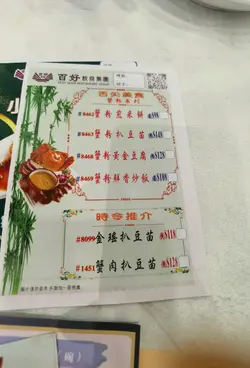 百好飲食集團
舌尖美食
蟹粉系列
#8462 蟹粉煎米餅 $98
蟹粉扒豆苗
#8468 蟹粉黃金豆腐 $128
#8469 蟹粉鮮香炒飯 $108
時令推介
#8099 金瑤扒豆苗 $118
#1451 蟹肉扒豆苗 $128